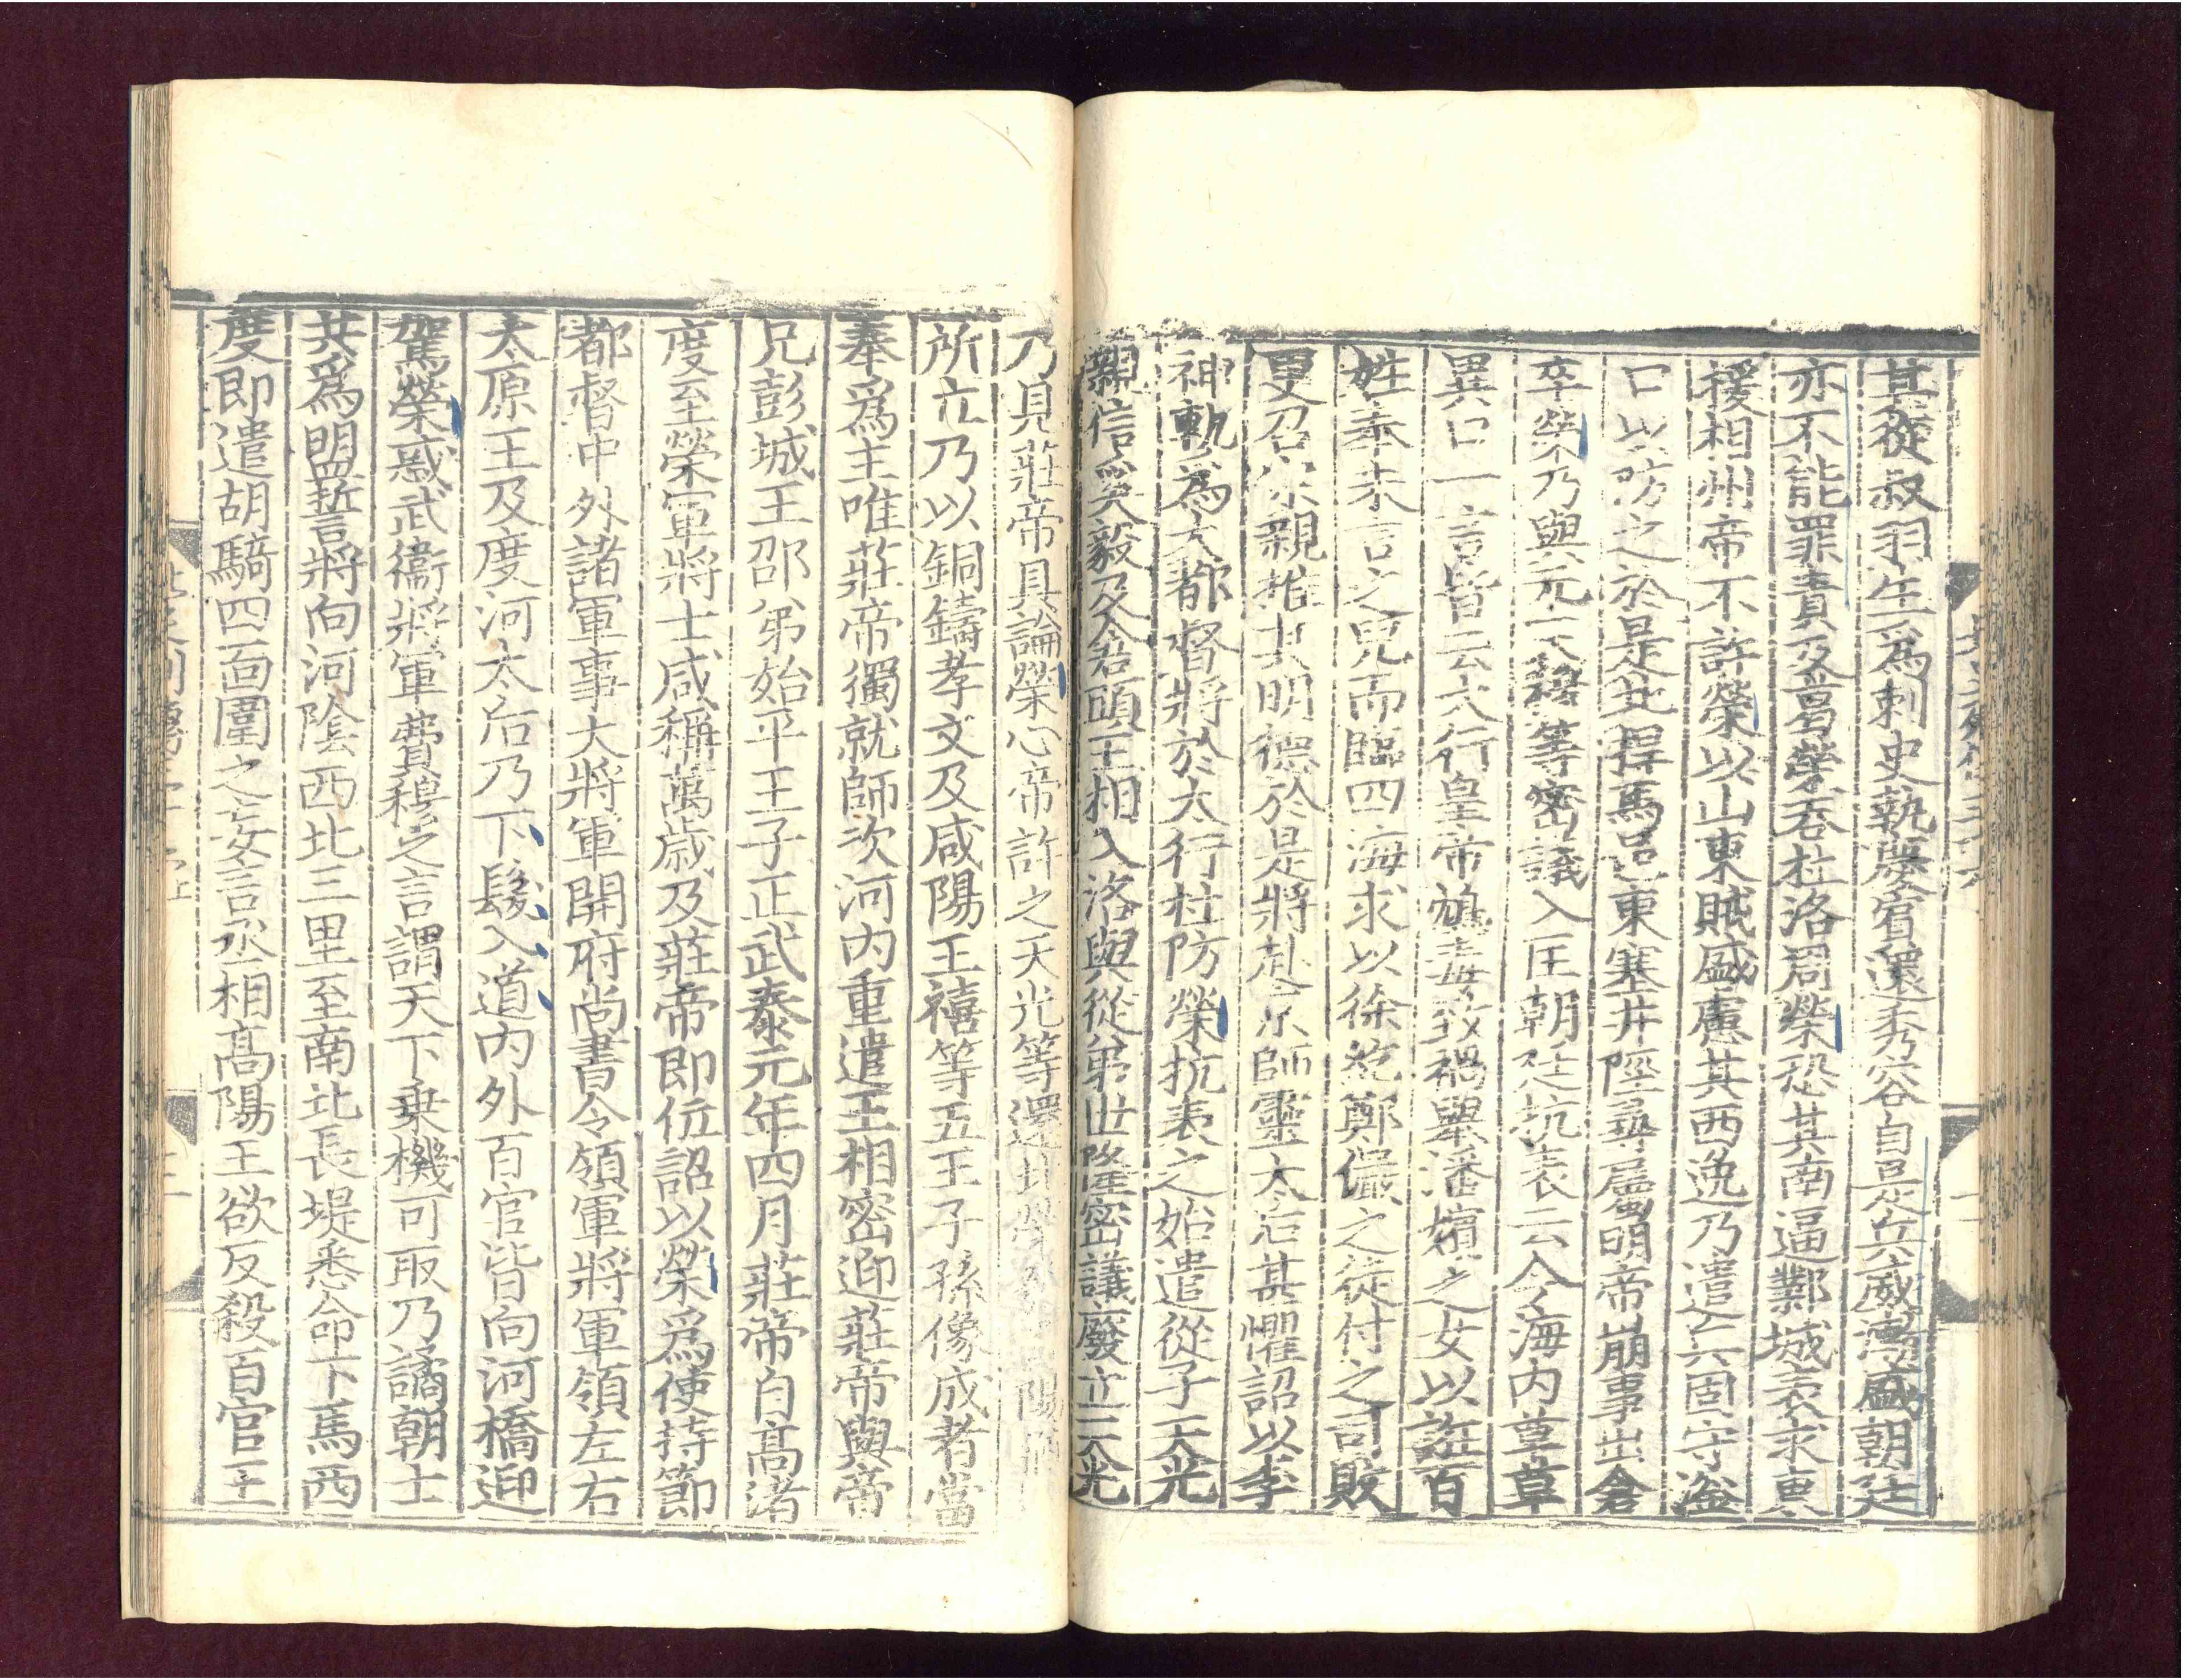 其從叔羽生爲刺史執慶賓還秀容自是兵威漸盛朝廷
亦不能罪責及葛榮吞杜洛周榮恐其南逼鄴城表求東
援相州帝不許榮以山東賊盛慮其西逸乃遣兵固守滏
口以防之於是北捍馬邑東塞井陘尋屬明帝崩事出倉
卒榮乃與元天穆等密議入匡朝廷抗表云今海内草草
異口一言皆云大行皇帝鴆毒致禍舉潘嬪之女以誑百
姓奉未言之兒而臨四海求以徐紇鄭儼之徒付之司敗
更召宗親推其明德於是將赴京師靈太后甚懼詔以李
神軌爲大都督將於太行杜防榮抗表之始遣從子天光
親信奚毅及倉頭王相入洛與從弟世隆密議廢立天光
乃見莊帝具論榮心帝許之天光等還北榮發晉陽猶
所立乃以銅鑄孝文及咸陽王禧等五王子孫像成者當
奉爲主唯莊帝獨就師次河内重遣王相密迎莊帝與帝
兄彭城王邵弟始平王子正武泰元年四月莊帝自高渚
度至榮軍將士咸稱萬歲及莊帝即位詔以榮爲使持節
都督中外諸軍事大將軍開府尚書令領軍將軍領左右
太原王及度河太后乃下髮入道内外百官皆向河橋迎
駕榮惑武衛將軍費穆之言謂天下乗機可取乃譎朝士
共爲盟誓將向河陰西北三里至南北長堤悉命下馬西
度即遣胡騎四面圍之妄言丞相高陽王欲反殺百官王